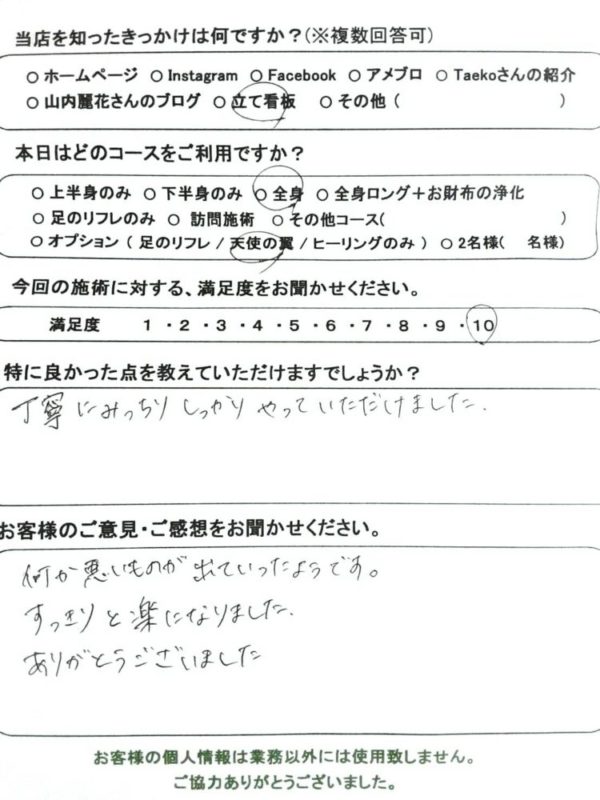 当店を知ったきっかけは何ですか？(※複数回答可)
○ ホームページ ○ Instagram ○ Facebook ○ アメブロ ○ Taekoさんの紹介
○ 山内麗花さんのブログ ○ 立て看板 ○ その他 ( )
本日はどのコースをご利用ですか？
○ 上半身のみ ○ 下半身のみ ○ 全身 ○ 全身ロング＋お財布の浄化
○ 足のリフレのみ ○ 訪問施術 ○ その他コース( )
○ オプション ( 足のリフレ / 天使の翼 / ヒーリングのみ ) ○ 2名様( 名様)
今回の施術に対する、満足度をお聞かせください。
満足度 1 ・2 ・3 ・4 ・5 ・6 ・7 ・8 ・9 ・10
特に良かった点を教えていただけますでしょうか？
丁寧にみっちりしっかりやっていただけました.
お客様のご意見・ご感想をお聞かせください。
何か悪いものが出ていったようです。
すっきりと楽になりました.
ありがとうございました
お客様の個人情報は業務以外には使用致しません。
ご協力ありがとうございました。